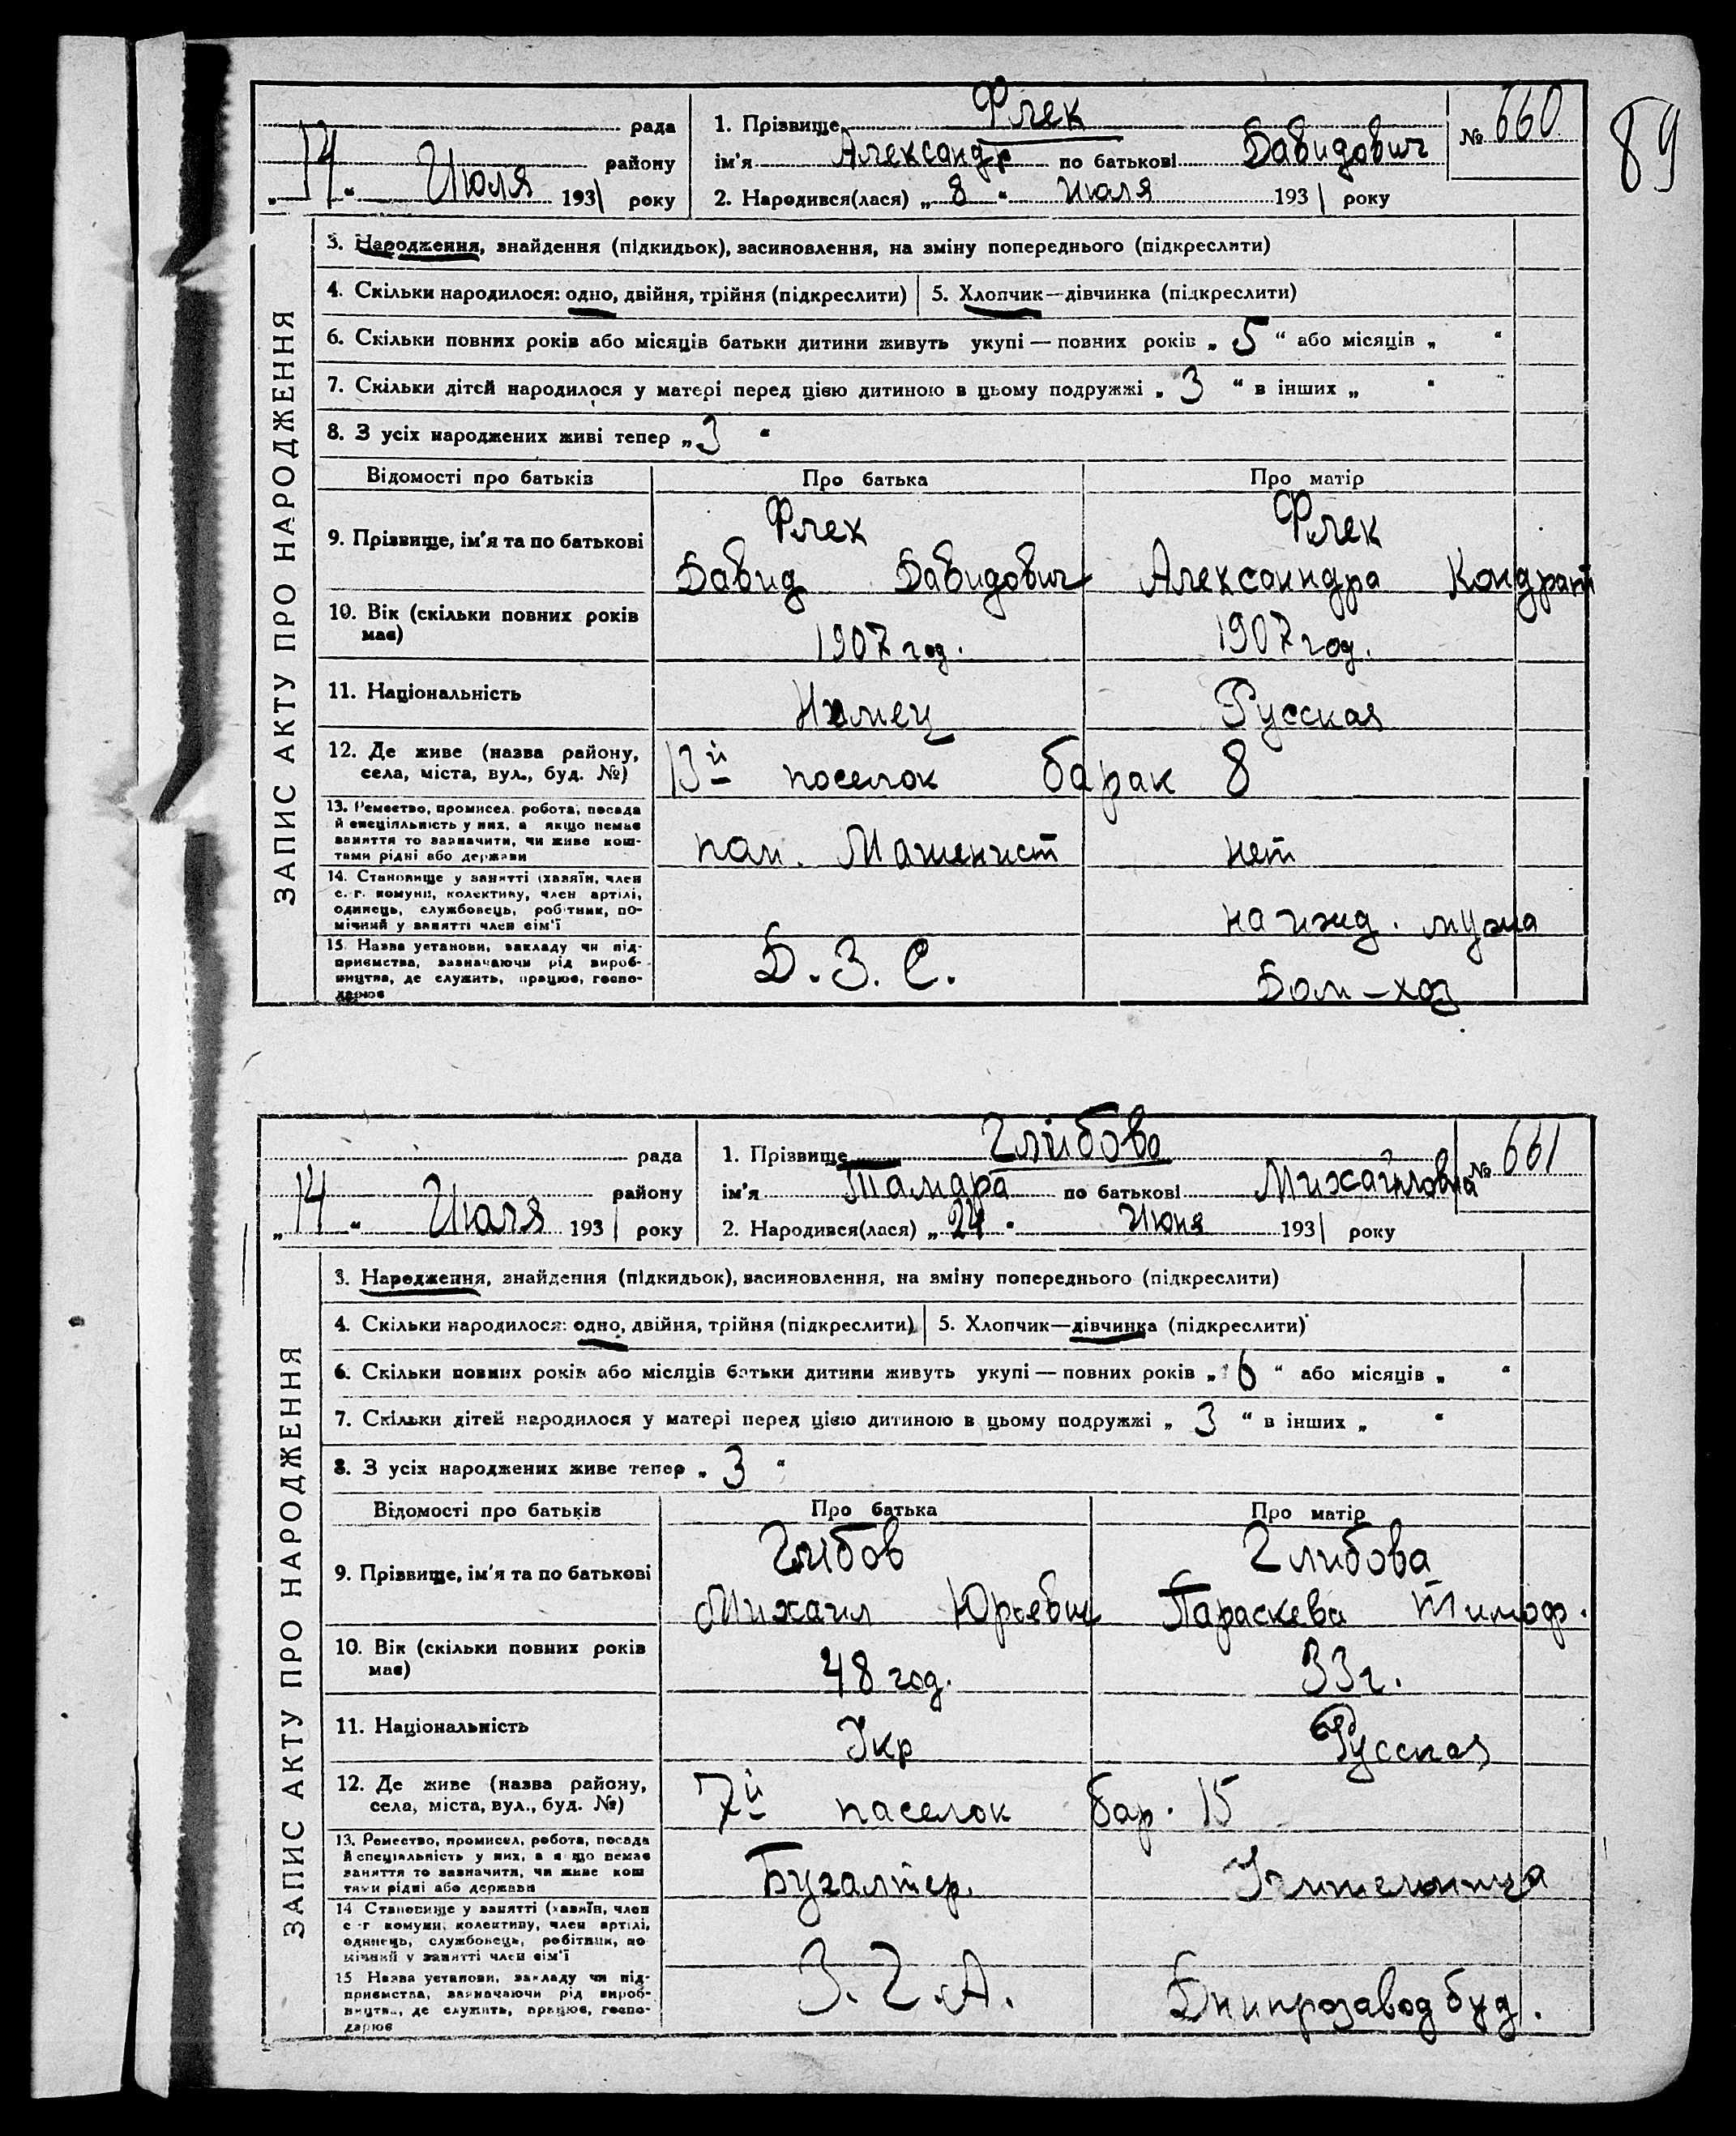 89
рада
района
"14" Июля 1931 року
1. Прізвище Флек
ім'я Александр по батькові Давидович
№ 660
2. Народився(лася) „8" Июля 1931 року
ЗАПИС АКТУ ПРО НАРОДЖЕННЯ
3. Народження, знайдення (підкидьок), засиновлення, на зміну попереднього (підкреслити)
4. Скільки народилося: одно, двійня, трійня (підкреслити) 5. Хлопчик—дівчинка (підкреслити)
6. Скільки повних років або місяців батьки дитини живуть укупі — повних років „5" або місяців „ "
7. Скільки дітей народилося у матері перед цією дитиною в цьому подружжі „3" в інших „ "
8. З усіх народжених живі тепер „3"
Відомості про батьків Про батька Про матір
9. Прізвище, ім'я та по батькові
Флек
Давид Давидович
Флек
Александра Кондрат
10. Вік (скільки повних років
має)
1907 год.
1907 год.
11. Національність Немец Русская
12. Де живе (назва району,
села, міста, вул., буд. №)
13й поселок барак 8
13. Ремество, промисел, робота, посада
й спеціяльність у них, а якщо немає
заняття то зазначити, чи живе кош-
тами рідні або держави
пом. Машенист
нет
14. Становище у занятті (хазяїн, член
с.-г. комуни, колективу, член артілі,
одинець, службовець, робітник, по-
мічний у занятті член сім'ї
на ижд. мужа
15. Назва установи, закладу чи під-
приємства, зазначаючи рід вироб-
ництва, де служить, працює, госпо-
дарює
Д.З.С.
Дом-хоз
рада
району
„14" Июля 1931 року
1. Прізвище Глібова
ім'я Тамара по батькові Михайловна
№ 661
2. Народився(лася) „24" Июня 1931 року
ЗАПИС АКТУ ПРО НАРОДЖЕННЯ
3. Народження, знайдення (підкидьок), засиновлення, на зміну попереднього (підкреслити)
4. Скільки народилося: одно, двійня, трійня (підкреслити) 5. Хлопчик—дівчинка (підкреслити)
6. Скільки повних років або місяців батьки дитини живуть укупі — повних років „6" або місяців „ "
7. Скільки дітей народилося у матері перед цією дитиною в цьому подружжі „3" в інших „ "
8. З усіх народжених живе тепер „3"
Відомості про батьків Про батька Про матір
9. Прізвище, ім'я та по батькові
Глибов
Михаил Юрьевич
Глибова
Параскева Тимоф.
10. Вік (скільки повних років
має)
48 год.
33 г.
11. Національність Укр Русская
12. Де живе (назва району,
села, міста, вул., буд. №)
7й паселок бар. 15
13. Ремество, промисел, робота, посада
й спеціяльність у них, а якщо немає
заняття то зазначити, чи живе кош
тами рідні або держави
Бугалтер.
Учительница
14 Становище у занятті (хазяїн, член
с.-г комуни, колективу, член артілі,
одинець, службовець, робітник, по
мічний у занятті член сім'ї
15 Назва установи, закладу чи під-
приємства, зазначаючи рід вироб-
ництва, де служить, працює, госпо-
дарює
З.Г.А.
Днипрозаводбуд.